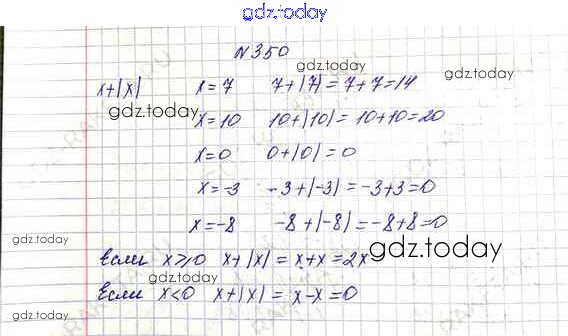 gdz.today
N 350
x+|x| x=7 7+|7|=7+7=14
gdz.today
gdz.today
x=10 10+|10|=10+10=20
x=0 0+|0|=0
gdz.today
x=-3 -3+|-3|=-3+3=0
x=-8 -8+|-8|=-8+8=0
gdz.today
gdz.today
Если x⩾0 x+|x|=x+x=2x
Если x<0 x+|x|=x-x=0
gdz.today